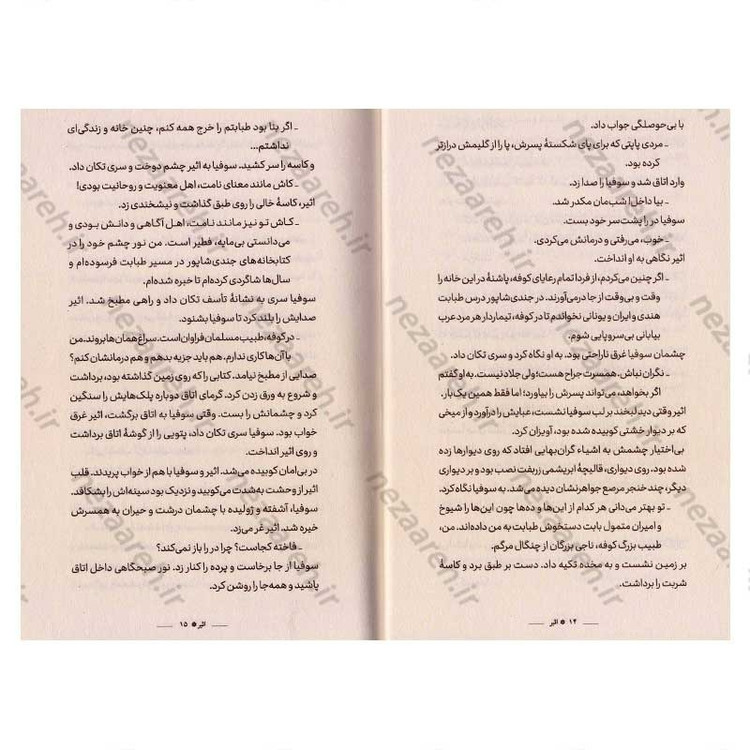 با بی‌حوصلگی جواب داد.
ـ مردی پاپتی که برای پای شکستهٔ پسرش، پا را از گلیمش درازتر
کرده بود.
وارد اتاق شد و سوفیا را صدا زد.
ـ بیا داخل! شب‌مان مکدر شد.
سوفیا در را پشت‌سر خود بست.
ـ خوب، می‌رفتی و درمانش می‌کردی.
اثیر نگاهی به او انداخت.
ـ اگر چنین می‌کردم، از فردا تمام رعایای کوفه، پاشنهٔ در این خانه را
وقت و بی‌وقت از جا درمی‌آورند. در جندی‌شاپور درس طبابت
هندی و ایران و یونانی نخواندم تا در کوفه، تیماردار هر مرد عرب
بیابانی بی‌سروپایی شوم.
چشمان سوفیا غرق ناراحتی بود. به او نگاه کرد و سری تکان داد.
ـ نگران نباش. همسرت جراح هست؛ ولی جلاد نیست. به او گفتم
اگر بخواهد، می‌تواند پسرش را بیاورد؛ اما فقط همین یک‌بار.
اثیر وقتی دید لبخند بر لب سوفیا نشست، عبایش را درآورد و از میخی
که بر دیوار خشتی کوبیده شده بود، آویزان کرد.
بی‌اختیار چشمش به اشیاء گران‌بهایی افتاد که روی دیوارها زده
شده بود. روی دیواری، قالیچهٔ ابریشمی زربفت نصب بود و بر دیواری
دیگر، چند خنجر مرصع جواهرنشان دیده می‌شد. به سوفیا نگاه کرد.
ـ تو بهتر می‌دانی هر کدام از این‌ها و ده‌ها چون این‌ها را شیوخ
و امیران متمول بابت دستخوش طبابت به من داده‌اند. من،
طبیب بزرگ کوفه، ناجی بزرگان از چنگال مرگم.
بر زمین نشست و به مخده تکیه داد. دست بر طبق برد و کاسهٔ
شربت را برداشت.
۱۴ ● اثیر
ـ اگر بنا بود طبابتم را خرج همه کنم، چنین خانه و زندگی‌ای
نداشتم...
و کاسه را سر کشید. سوفیا به اثیر چشم دوخت و سری تکان داد.
ـ کاش مانند معنای نامت، اهل معنویت و روحانیت بودی!
اثیر، کاسهٔ خالی را روی طبق گذاشت و نیشخندی زد.
ـ کاش تو نیز مانند نامت، اهل آگاهی و دانش بودی و
می‌دانستی بی‌مایه، فطیر است. من نور چشم خود را در
کتابخانه‌های جندی‌شاپور در مسیر طبابت فرسوده‌ام و
سال‌ها شاگردی کرده‌ام تا خبره شده‌ام.
سوفیا سری به نشانهٔ تأسف تکان داد و راهی مطبخ شد. اثیر
صدایش را بلند کرد تا سوفیا بشنود.
ـ در کوفه، طبیب مسلمان فراوان است. سراغ همان‌ها بروند. من
با آن‌ها کاری ندارم. هم باید جزیه بدهم و هم درمانشان کنم؟
صدایی از مطبخ نیامد. کتابی را که روی زمین گذاشته بود، برداشت
و شروع به ورق زدن کرد. گرمای اتاق دوباره پلک‌هایش را سنگین
کرد و چشمانش را بست. وقتی سوفیا به اتاق برگشت، اثیر غرق
خواب بود. سوفیا سری تکان داد، پتویی را از گوشهٔ اتاق برداشت
و روی اثیر انداخت.
در بی‌امان کوبیده می‌شد. اثیر و سوفیا با هم از خواب پریدند. قلب
اثیر از وحشت به‌شدت می‌کوبید و نزدیک بود سینه‌اش را بشکافد.
سوفیا، آشفته و ژولیده با چشمان درشت و حیران به همسرش
خیره شد. اثیر غر می‌زد.
ـ فاخته کجاست؟ چرا در را باز نمی‌کند؟
سوفیا از جا برخاست و پرده را کنار زد. نور صبحگاهی داخل اتاق
پاشید و همه‌جا را روشن کرد.
اثیر ● ۱۵
nezaareh.ir